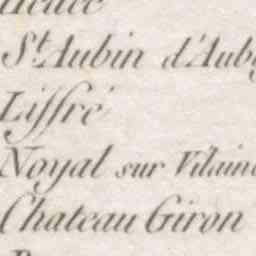 St. Aubin d'Aub
Liffré
Noyal sur Vilain
Chateau Giron